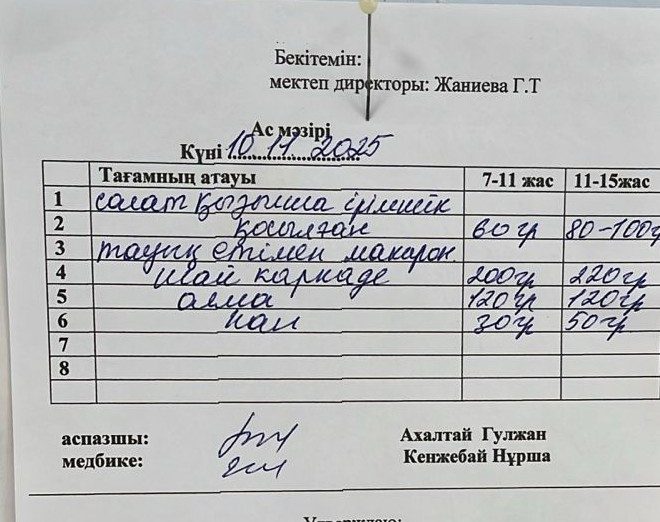 Бекітемін:
мектеп директоры: Жаниева Г.Т
Ас мәзірі
Күні 10.11 2025
Тағамның атауы 7-11 жас 11-15жас
1 салат қызылша ірімшік
2 қосылған 60гр 80-100г
3 тауық етімен макарон
4 шай каркаде 200гр 220гр
5 алма 120гр 120гр
6 нан 30гр 50гр
7
8
аспазшы: Ахалтай Гулжан
медбике: Кенжебай Нұрша
Утверждаю: